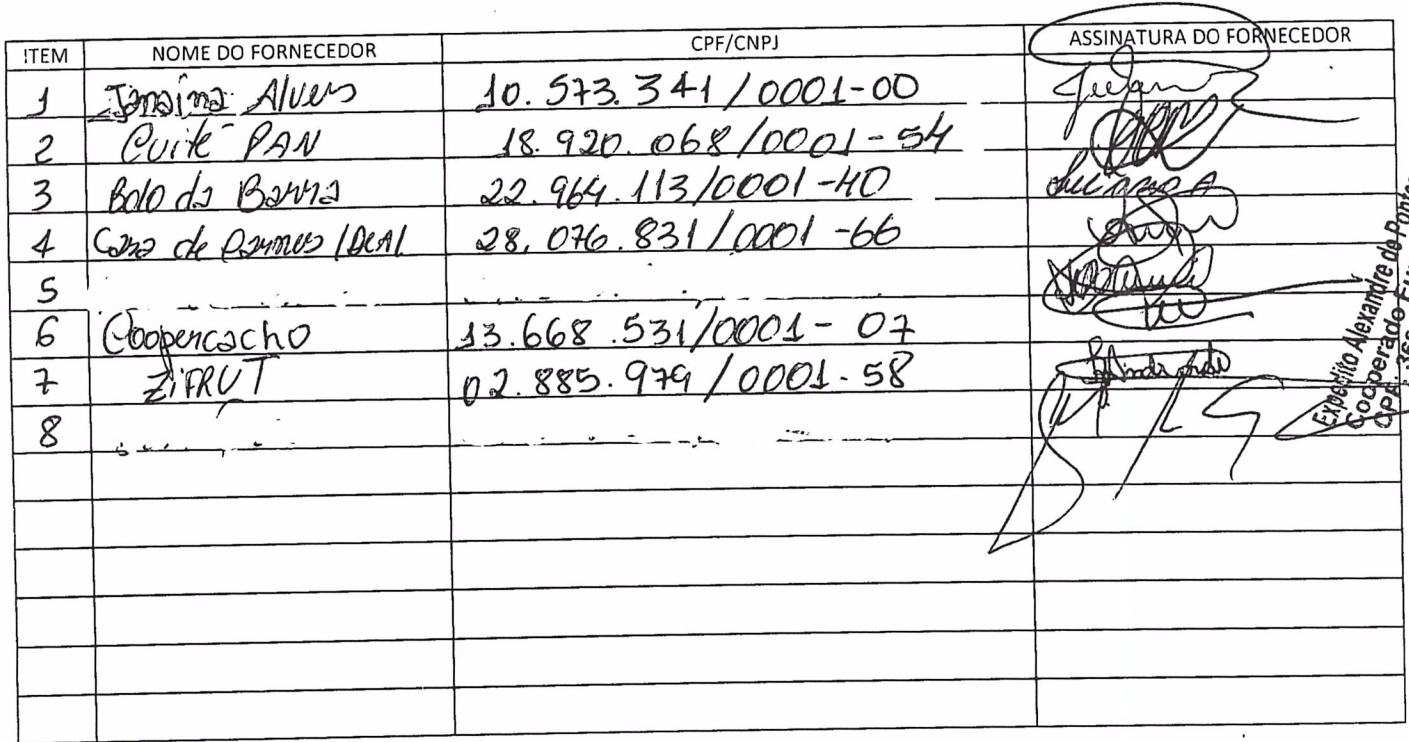 ITEM NOME DO FORNECEDOR CPF/CNPJ ASSINATURA DO FORNECEDOR
1 Janaina Alves 10.573.341/0001-00
2 Cuité PAN 18.920.068/0001-54
3 Bolo da Barra 22.964.113/0001-40
4 Casa de 28.076.831/0001-66
5
6 Coopercacho 13.668.531/0001-07
7 ZiFRUT 02.885.979/0001-58
8
Expedito Alexandre de
Cooperado
CPF